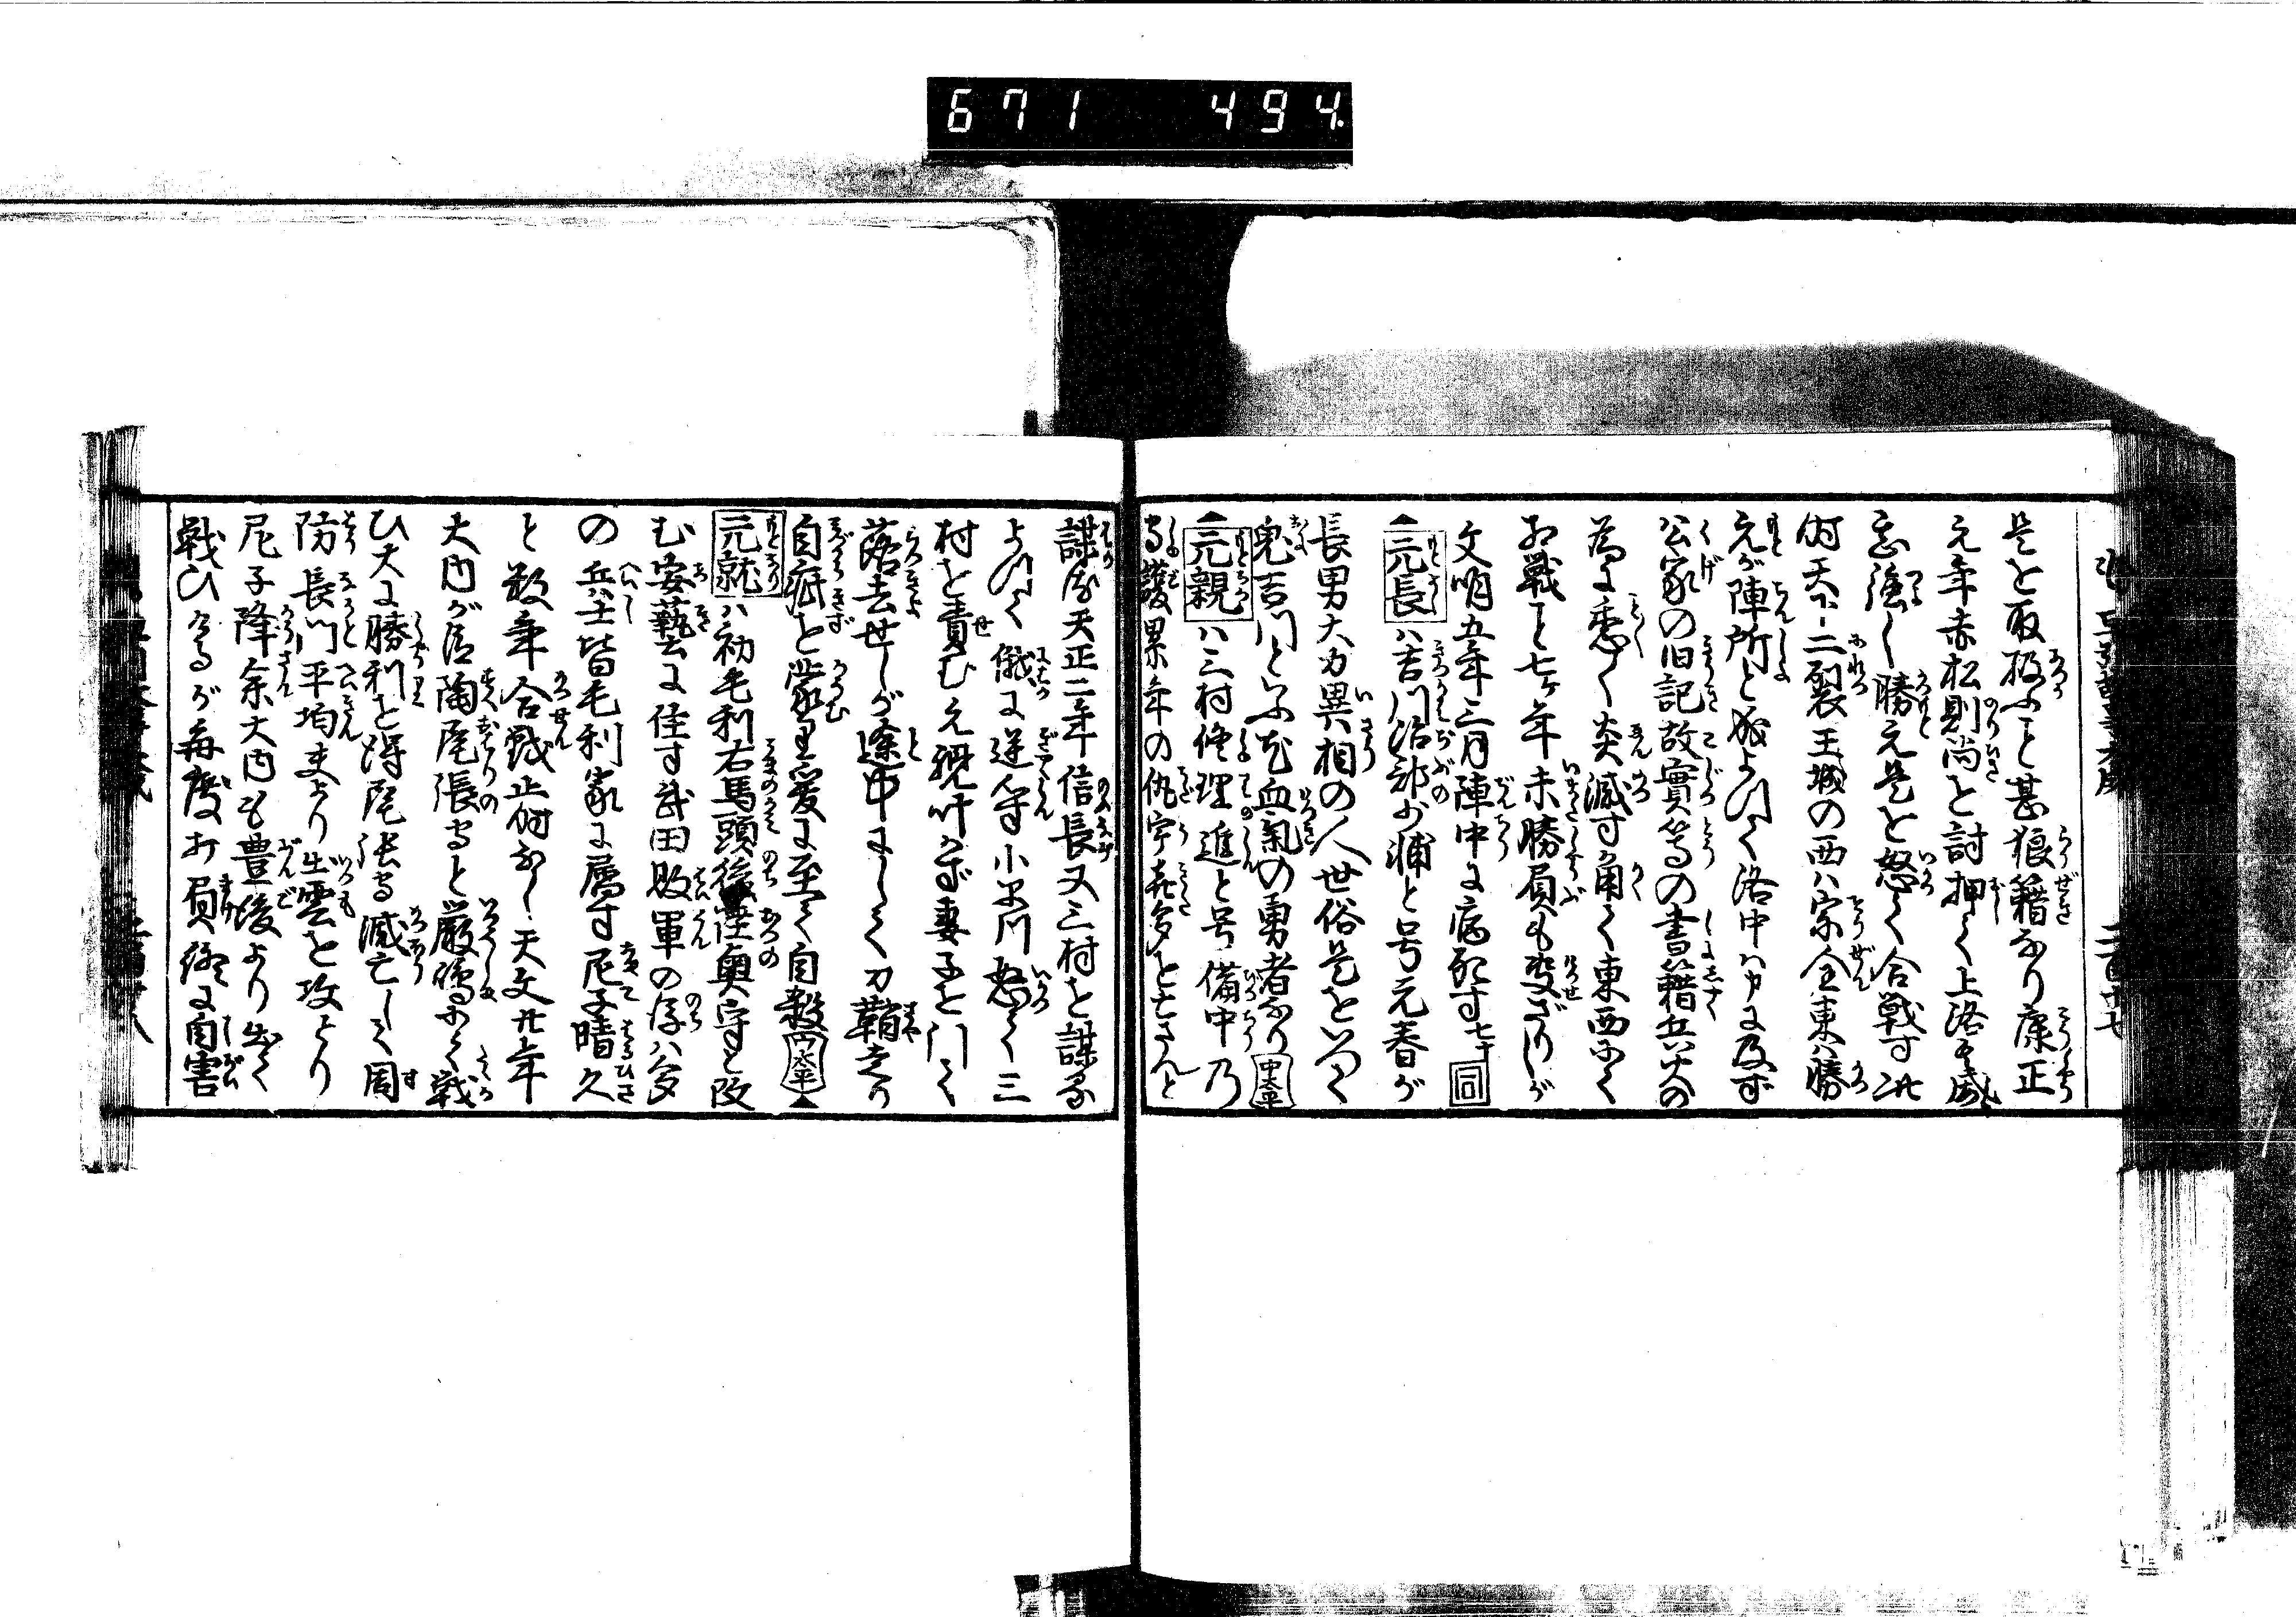 671 494
是を取扱ふこと甚狼籍なり康正
元年赤松則尚を討押て上洛す威
忘強し勝元是を怒て合戦す此
時天下二裂王城の西ハ宗全東ハ勝
元が陣所と成よつて洛中ハ申に及ず
公家の旧記故實等の書籍兵火の
為に悉く炎滅す角て東西にて
相戦こと七ケ年未勝負も決ざりしが
文明五年三月陣中に病死す七十 同
元長 ハ吉川治部少浦と号元春が
長男大力異相の人世俗是をいつて
鬼吉川といふ尤血氣の勇者なり
元親 ハ三村修理進と号備中乃
守護累年の仇宇喜多を亡さんと
謀る天正二年信長又三村を謀る
よつて俄に逆心す小早川怒て三
村を責む元親叶ハず妻子を
落去せしが途中にして刀鞘走り
自疵を蒙り爰に至て自殺
元就 ハ初毛利右馬頭後陸奥守と改
む安藝に住す武田敗軍の後ハ多
の兵士皆毛利家に属す尼子晴久
と数年合戦止時なし天文廿年
大内が臣陶尾張守と厳嶋にて戦
ひ大に勝利を得尾張守滅亡して周
防長門平均夫より出雲を攻とり
尼子降参大内も豊後より出て
戦ひけるが毎度打負終に自害